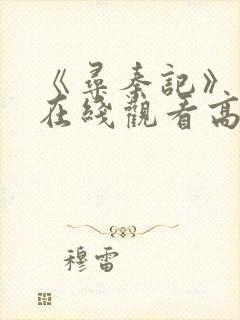 《尋秦記》
在綫觀看高
穆雷